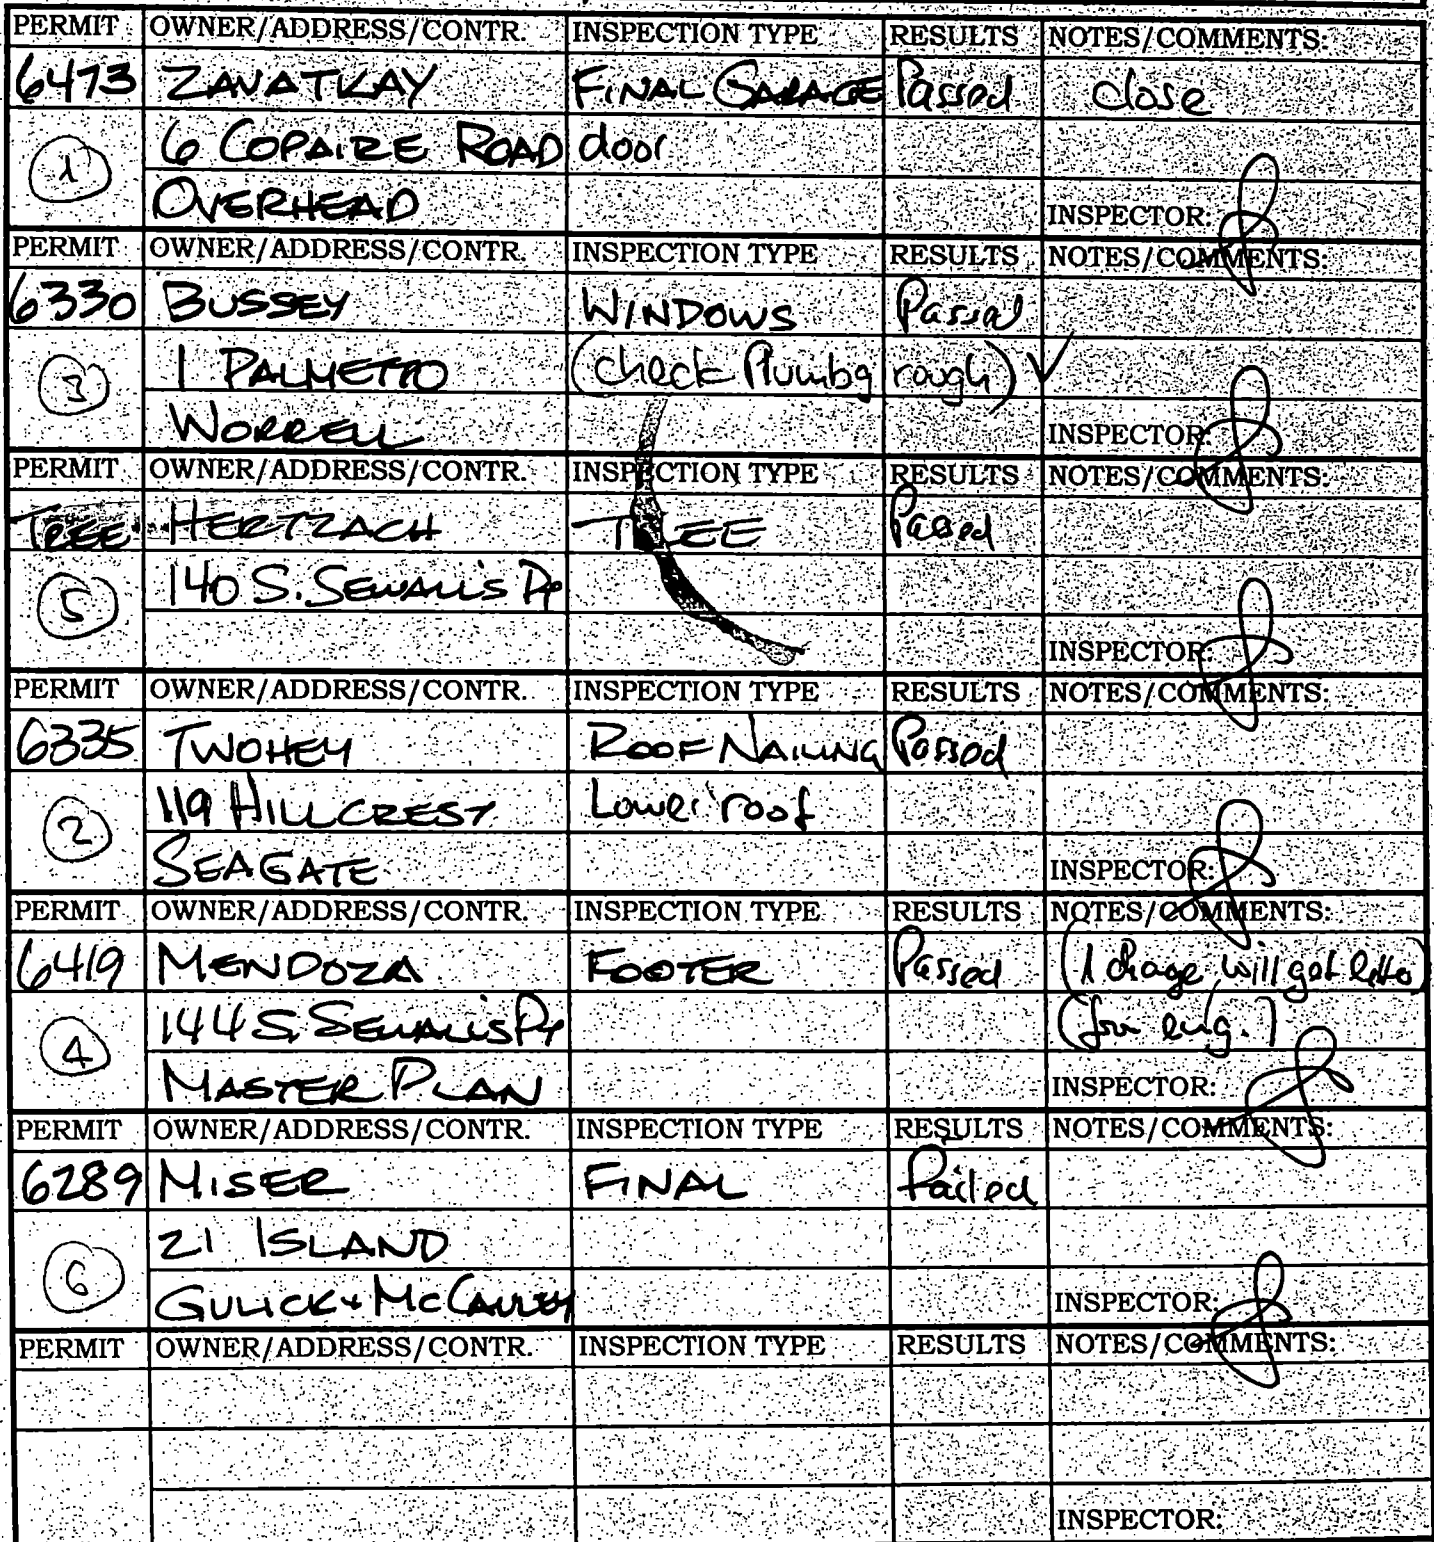 PERMIT OWNER/ADDRESS/CONTR. INSPECTION TYPE RESULTS NOTES/COMMENTS:
6473 ZAVATKAY FINAL GARAGE Passed close
1 6 COPAIRE ROAD door
OVERHEAD INSPECTOR:
PERMIT OWNER/ADDRESS/CONTR. INSPECTION TYPE RESULTS NOTES/COMMENTS:
6330 BUSSEY WINDOWS Passed
3 1 PALMETTO (check Plumbg rough) ✓
WORRELL INSPECTOR:
PERMIT OWNER/ADDRESS/CONTR. INSPECTION TYPE RESULTS NOTES/COMMENTS:
TREE HERTZACH TREE Passed
5 140 S. SEWALL'S Pt
INSPECTOR:
PERMIT OWNER/ADDRESS/CONTR. INSPECTION TYPE RESULTS NOTES/COMMENTS:
6335 TWOHEY ROOF NAILING Passed
2 119 HILLCREST Lower roof
SEAGATE INSPECTOR:
PERMIT OWNER/ADDRESS/CONTR. INSPECTION TYPE RESULTS NOTES/COMMENTS:
6419 MENDOZA FOOTER Passed (1 change, will get letter)
4 144 S. SEWALL'S Pt (from eng.)
MASTER PLAN INSPECTOR:
PERMIT OWNER/ADDRESS/CONTR. INSPECTION TYPE RESULTS NOTES/COMMENTS:
6289 MISER FINAL Failed
6 21 ISLAND
GULICK + McCAULEY INSPECTOR:
PERMIT OWNER/ADDRESS/CONTR. INSPECTION TYPE RESULTS NOTES/COMMENTS:
INSPECTOR: